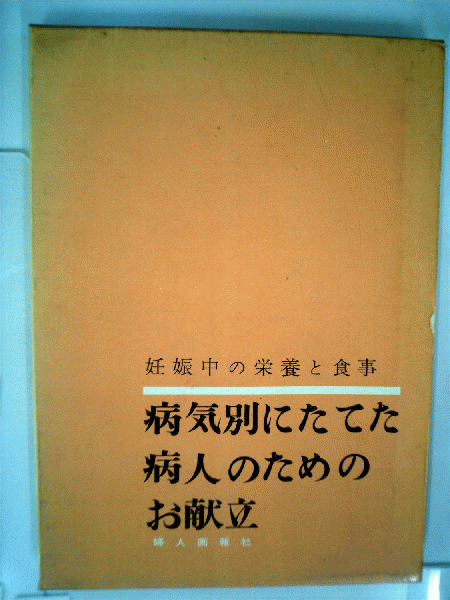 妊娠中の栄養と食事
病気別にたてた
病人のための
お献立
婦人画報社